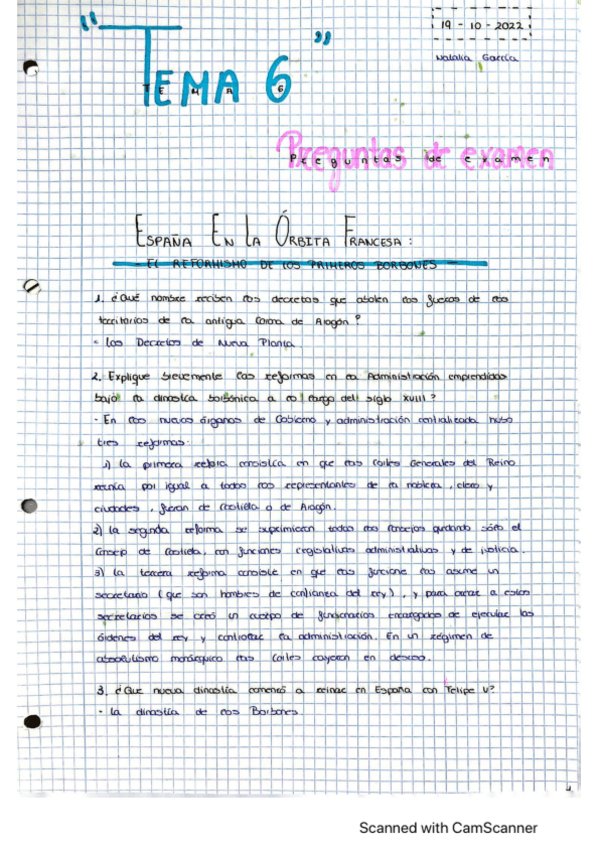 19 - 10 - 2022
Natalia García
"TEMA 6"
Preguntas de examen
ESPAÑA EN LA ÓRBITA FRANCESA:
EL REFORMISMO DE LOS PRIMEROS BORBONES
1. ¿Qué nombre reciben los decretos que abolen los fueros de los
territorios de la antigua Corona de Aragón?
- Los Decretos de Nueva Planta.
2. Explique brevemente las reformas en la Administración emprendidas
bajo la dinastía borbónica a lo largo del siglo XVIII?
- En los nuevos órganos de Gobierno y administración centralizada hubo
tres reformas:
1) La primera reforma consistía en que las Cortes Generales del Reino
reunía por igual a todos los representantes de la nobleza, clero y
ciudades, fueran de Castilla o de Aragón.
2) La segunda reforma se suprimieron todos los consejos quedando sólo el
Consejo de Castilla, con funciones legislativas administrativas y de policía.
3) La tercera reforma consiste en que las funciones las asume un
secretario (que son hombres de confianza del rey), y para atar a estos
secretarios se creó un cuerpo de funcionarios encargados de ejecutar las
órdenes del rey y controlar la administración. En un régimen de
absolutismo monárquico las Cortes cayeron en desuso.
3. ¿Que nueva dinastía comenzó a reinar en España con Felipe V?
- La dinastía de los Borbones.
Scanned with CamScanner